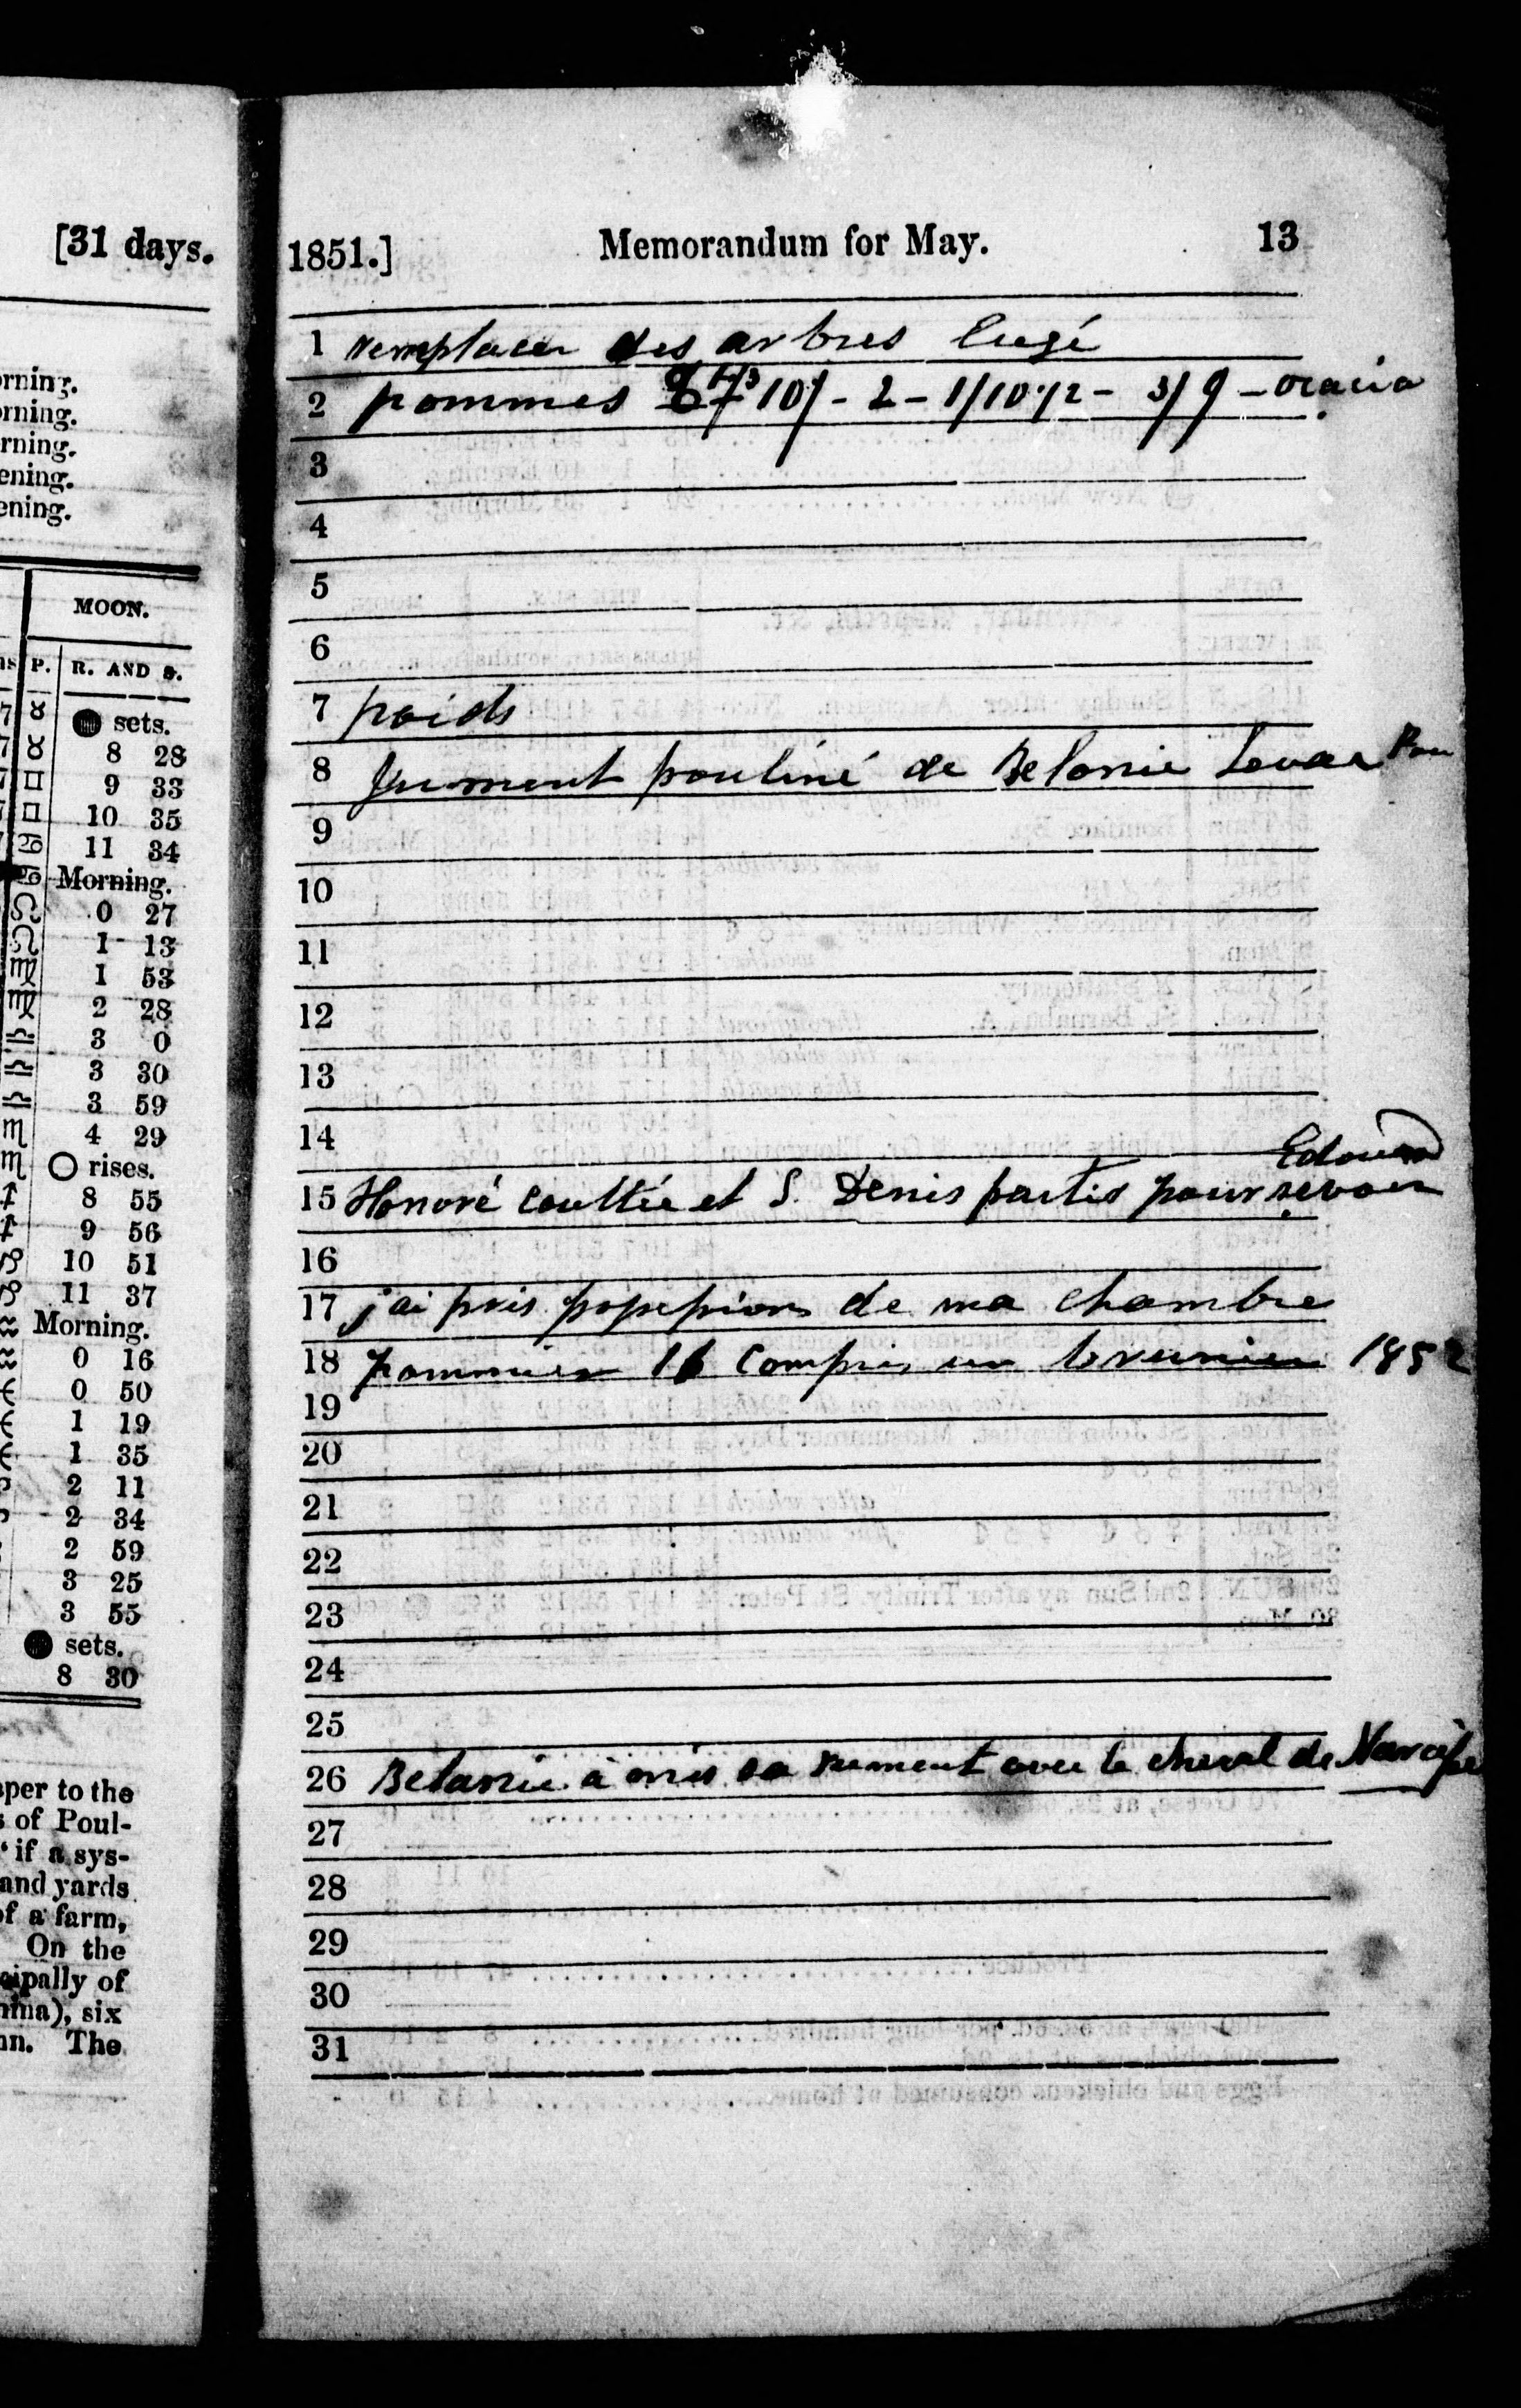 [31 days.
rning.
rning.
rning.
ening.
ening.
MOON.
P. R. AND S.
sets.
8 28
9 33
10 35
11 34
Morning.
0 27
1 13
1 53
2 28
3 0
3 30
3 59
4 29
rises.
8 55
9 56
10 51
11 37
Morning.
0 16
0 50
1 19
1 35
2 11
2 34
2 59
3 25
3 55
sets.
8 30
per to the
of Poul-
if a sys-
and yards
of a farm,
On the
cipally of
hina), six
The
1851.] Memorandum for May. 13
1 remplacer des arbres
2 pommes 10/- 2 - 1/10 1/2 - 3/9 -
3
4
5
6
7 poids
8 Jument pouliné de Belonie
9
10
11
12
13
14
Edouard
15 Honoré couttée et S. Denis partis pour
16
17 j'ai pris possession de ma chambre
18 pommier 16 compris un 1852
19
20
21
22
23
24
25
26 Belanie à mis sa Jument avec le cheval de Narcisse
27
28
29
30
31